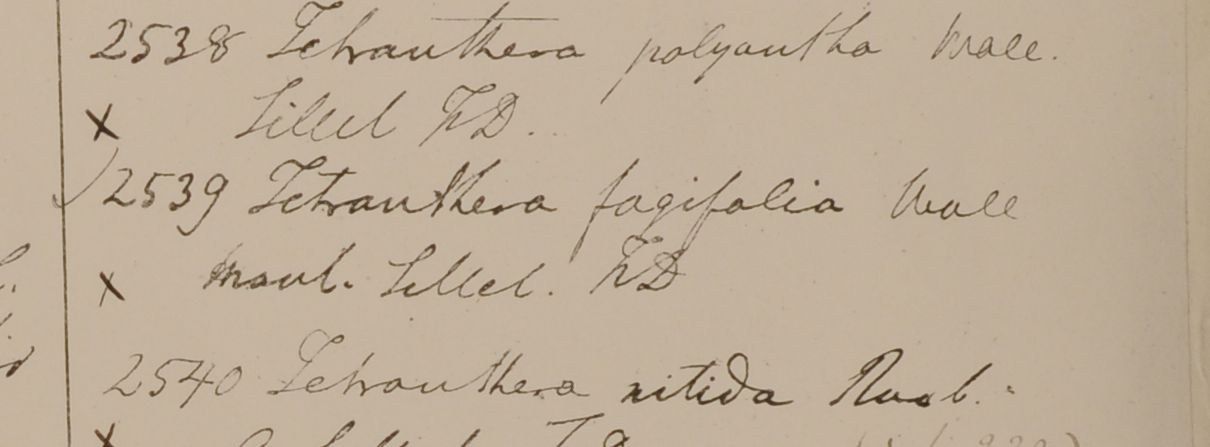 2538 Tetranthera polyantha Wall.
x Sillet FD.
2539 Tetranthera fagifolia Wall
x mont. Sillet. FD
2540 Tetranthera nitida Roxb.
x